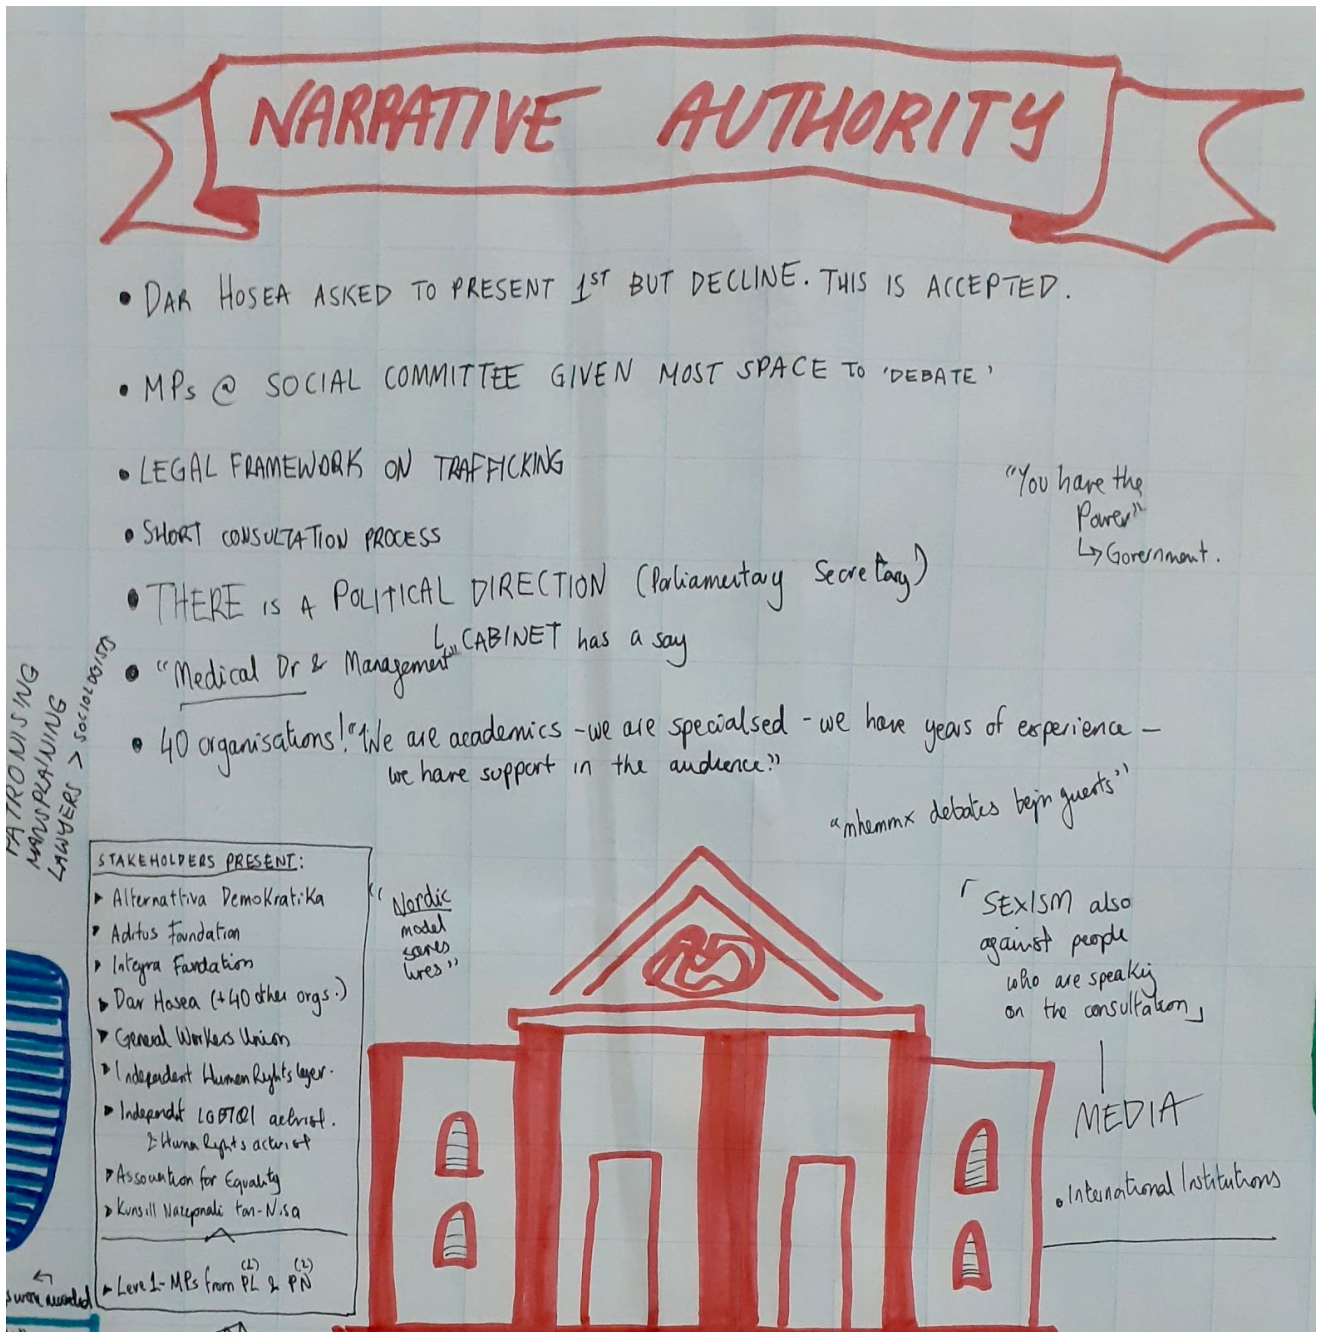 NARRATIVE AUTHORITY
• DAR HOSEA ASKED TO PRESENT 1ST BUT DECLINE. THIS IS ACCEPTED.
• MPs @ SOCIAL COMMITTEE GIVEN MOST SPACE TO 'DEBATE'
• LEGAL FRAMEWORK ON TRAFFICKING
"You have the
Power"
↳ Government.
• SHORT CONSULTATION PROCESS
• THERE IS A POLITICAL DIRECTION (Parliamentary Secretary)
↳ CABINET has a say
• "Medical Dr & Management"
• 40 organisations! "We are academics - we are specialsed - we have years of experience -
we have support in the audience."
PATRONISING
MANSPLAINING
LAWYERS > SOCIOLOGISTS
"mhemmx debates bejn guests"
STAKEHOLDERS PRESENT:
▸ Alternattiva Demokratika
▸ Aditus Foundation
▸ Integra Fundation
▸ Dar Hosea (+40 other orgs.)
▸ General Workers Union
▸ Independent Human Rights
▸ Independt LGBTQI activist.
& Human Rights activist
▸ Association for Equality
▸ Kunsill Nazzjonali tan-Nisa
▸ MPs from PL & PN
"Nordic
model
saves
lives"
「SEXISM also
against people
who are speaking
on the consultation」
MEDIA
• International Institutions